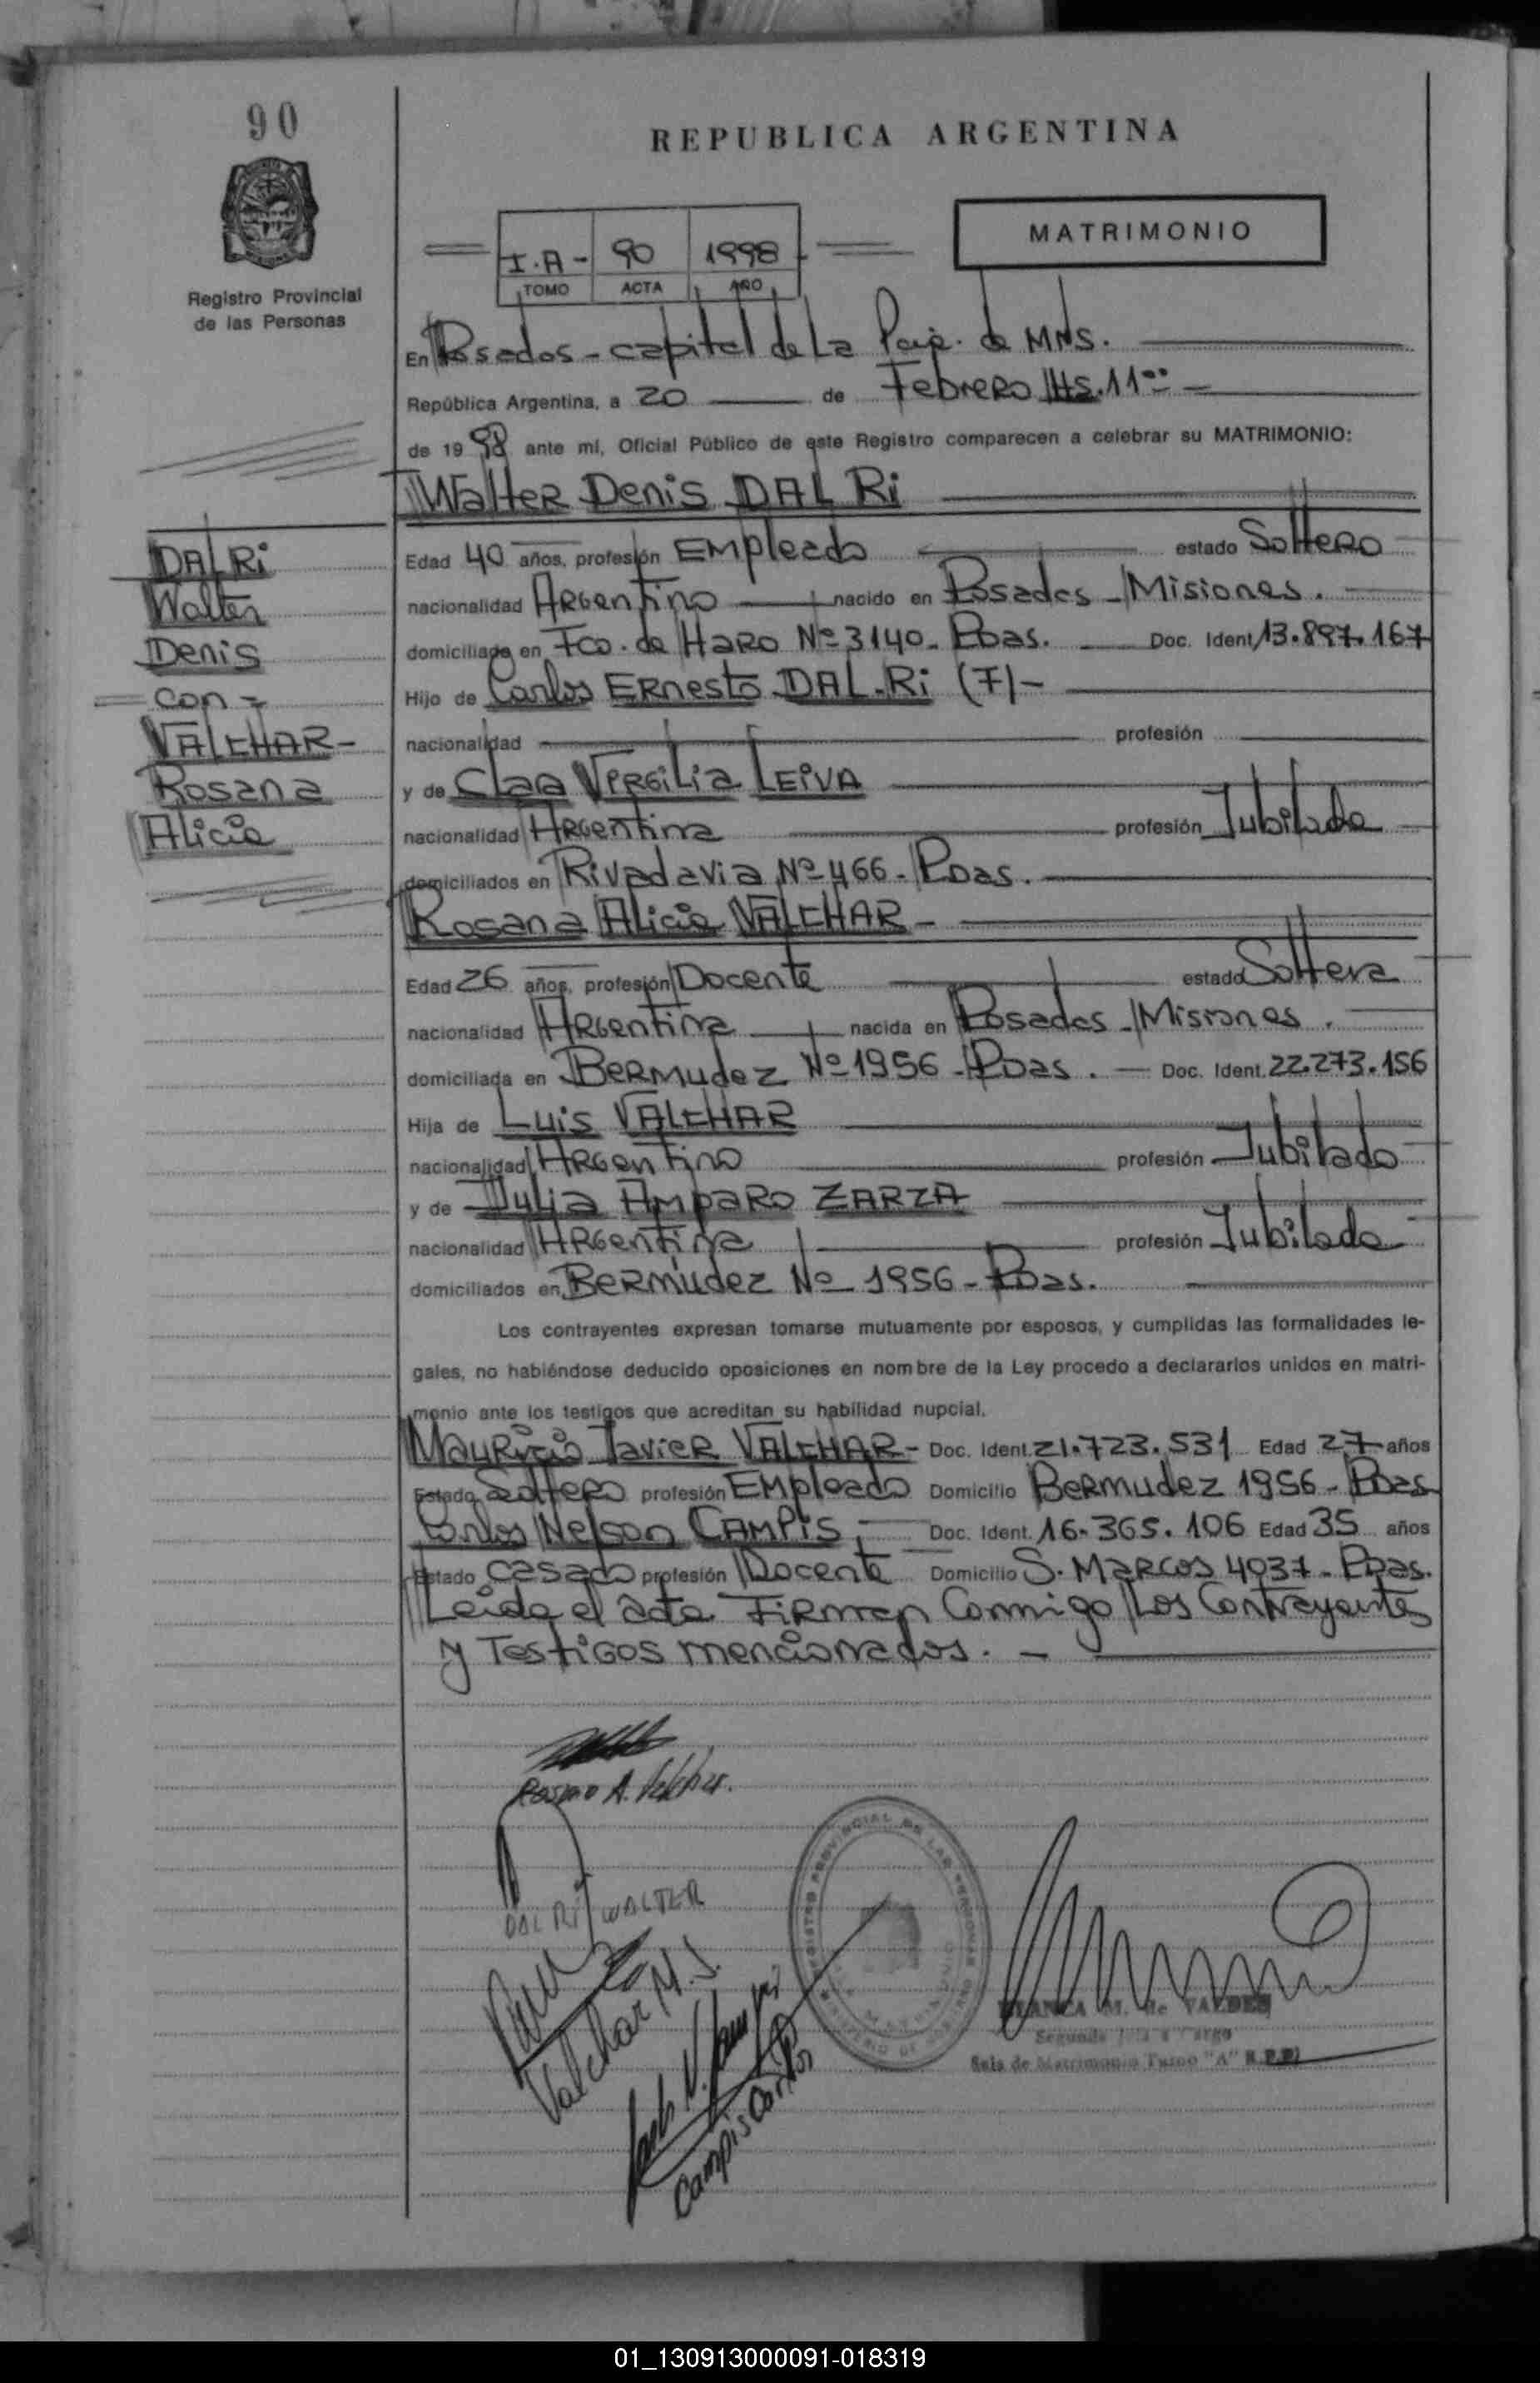 90
REPUBLICA ARGENTINA
MATRIMONIO
I.A- 90 1998
TOMO ACTA AÑO
Registro Provincial
de las Personas
En Posadas - capital de La de MNS.
República Argentina, a 20 de Febrero Hs. 11
de 1998 ante mí, Oficial Público de este Registro comparecen a celebrar su MATRIMONIO:
Walter Denis DAL Ri
DAL Ri
Walter
Denis
= con =
VALCHAR-
Rosana
Alicia
Edad 40 años, profesión Empleado estado Soltero
nacionalidad Argentino nacido en Posadas - Misiones.
domiciliado en Fco. de Haro Nº 3140- Pdas. Doc. Ident. 13.897.167
Hijo de Carlos Ernesto DAL-Ri (F)-
nacionalidad profesión
y de Clara Virgilia LEiVA
nacionalidad Argentina profesión Jubilada
domiciliados en Rivadavia Nº 466 - Pdas.
Rosana Alicia VALCHAR-
Edad 26 años, profesión Docente estado Soltera
nacionalidad Argentina nacida en Posadas - Misiones.
domiciliada en Bermudez Nº 1956 - Pdas. Doc. Ident. 22.273.156
Hija de Luis VALCHAR
nacionalidad Argentino profesión Jubilado
y de Julia Amparo ZARZA
nacionalidad Argentina profesión Jubilada
domiciliados en Bermudez Nº 1956 - Pdas.
Los contrayentes expresan tomarse mutuamente por esposos, y cumplidas las formalidades le-
gales, no habiéndose deducido oposiciones en nombre de la Ley procedo a declararlos unidos en matri-
monio ante los testigos que acreditan su habilidad nupcial.
Mauricio Javier VALCHAR- Doc. Ident. 21.723.531 Edad 27 años
Estado Soltero profesión Empleado Domicilio Bermudez 1956 - Pdas
Carlos Nelson CAMPiS, Doc. Ident. 16.365.106 Edad 35 años
Estado Casado profesión Docente Domicilio S. Marcos 4037 - Pdas.
Leida el acta Firman Conmigo Los Contrayentes
y Testigos mencionados. -
Rosana A. Valchar.
DAL Ri WALTER
Valchar M.J.
Campis Carlos
REGISTRO PROVINCIAL DE LAS PERSONAS
BLANCA M. de VALDES
Segunda Jefa a Cargo
Sala de Matrimonio Turno "A" R.P.P.
01_130913000091-018319